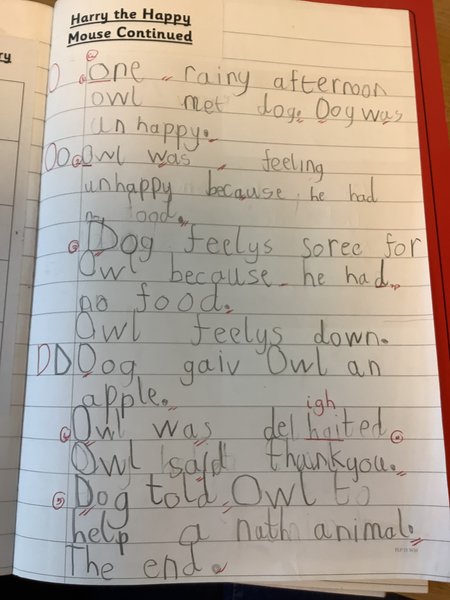 Harry the Happy
Mouse Continued
One rainy afternoon
owl met dog. Dog was
unhappy.
Oo Owl was feeling
unhappy because he had
no food.
Dog feelys soree for
Owl because he had
no food.
Owl feelys down.
DD Dog gaiv Owl an
apple.
igh
Owl was delhaited
Owl said thankyou.
Dog told Owl to
help a nath animal.
The end.